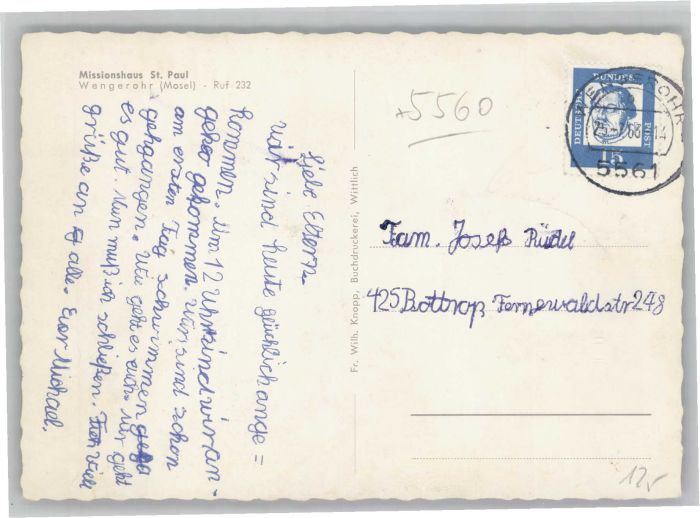 Missionshaus St. Paul
Wengerohr (Mosel) - Ruf 232
Liebe Eltern.
wir sind heute glücklich ange =
kommen. Um 12 Uhr sind wir an -
geko gekommen. Wir sind schon
am ersten Tag schwimmen gega
gehgangen. Wie geht es euch. Mir geht
es gut. Nun muß ich schließen. Viele
grüße an alle. Euer Michael.
Fr. Wilh. Knopp, Buchdruckerei, Wittlich
5560
DEUTSCHE
BUNDES
POST
15
25-7.63-14
5561
Fam. Josef Rüdel
425 Bottrop Fernewaldstr 248
12,-